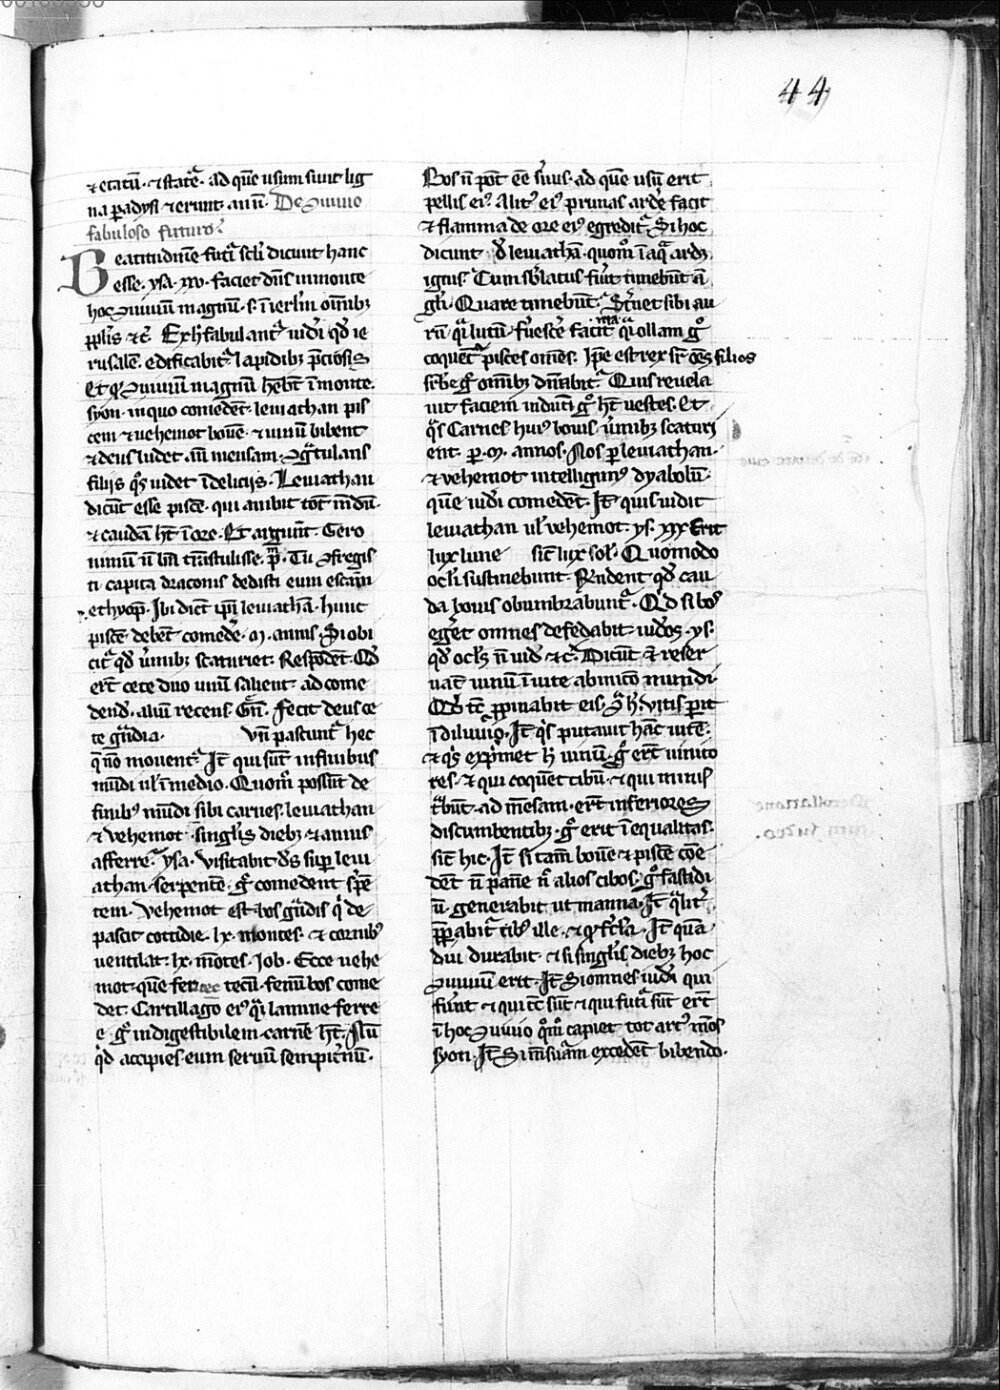 44
⁊ etatū. ⁊ statr̄. ad quē usum sunt lig
na padysi ⁊ erunt. amn̄. De 9uiuio
fabuloso futuro.
Beatitudinē futi scl̓i dicunt hanc
esse. ysa. xxv. faciet dn̄s in monte
hoc 9uiuiū magnū. s. i ierl̓m omībꝫ
pplis ⁊c̄. Ex h̓ fabulant̓ iudi qd̓ ie
rusalē. edificabit̓ lapidibꝫ p̄ciosis
Et qd̓ 9uiuiū magnū hēbt̄ ī monte.
syon. in quo comedēt. leuiathan pis
cem ⁊ uehemot bouē. ⁊ uinū bibent
⁊ deus ludet. an̄ mensam. 9g̓tulans
filiis qs̓ uidet ī deliciis. Leuiathan
dicūt esse piscē. qui ambit totū mdū̄.
⁊ caudā ht̄ ī ore. Et arguūt. Gero
nimū n̄ bn̄ trāstulisse. p̄. Tu 9fregis
ti capita draconis dedisti eum escam
ethyop̄. Ibi dict̄ ip̄i leuiathā. hunc
piscē debēt comedē. m. annis. Si obi
cit̓ qd̓ u̓mibꝫ scaturiet. Respōdēt. Qd̓
erūt cete duo unū salient. ad come
dend̓. aliū recens. Gn̄. fecit deus ce
te g̓ndia. Vn̄ pascunt̓ hec
q̄ nō mouent̓. It̄ qui sūt̄ in finibus
mūdi ul̓ ī medio. Quom̓ possūt de
finib9 mūdi sibi carnes. leuiathan
⁊ vehemot. singl̓is diebꝫ. ⁊ annis
afferre. ysa. visitabit d̓s sup̱ leui
athan serpentē. g̊ comedent s̓pē
tem. vehemot est bos g̓ndis q̓ de
pascit cottidie. lx. montes. ⁊ cornib9
uentilat. lx. mōtes. Job. Ecce uehe
mot. quē feci tecū. fenū bos come
det. Cartillago ei9 q̓i lamine ferre
e. g̊ indigestibilem carnē ht̄. Nū
q̓d accipies eum seruū sempit̓nū.
Bos n̄ pōt eē su̓us. ad quē usū erit
pellis ei9. Alit9 ei9 prunas ardē facit
⁊ flamma de ore ei9 egredit̓. Si hoc
dicunt d̓ leuiathā. quom̓ ī aq̓ ardꝫ
ignis. Cum sb̓latus fu̓it timebūt ā
gl̓i. Quare timebūt. St̓net sibi au
rū q̓i lutū. fu̓escē faciet q̓i ollam g̊
coquet̓ pisces omēs. Ip̄e est rex sr̄ oēs filios
sr̓be g̊ omībꝫ dn̄abit̓. Quis reuela
uit faciem induti g̊ ht̄ uestes. Et
q̓s Carnes hui9 bouis u̓mibꝫ scaturi
ent. p̱. m. annos. Nos p̱ leuiathan.
⁊ vehemot intelligim9 dyabolū.
quē iudi comedēt. It̄ quis uidit
leuiathan ul̓ vehemot. ys. xxx Erit
lux lune sic̄ lux sol̓. Quomodo
ocl̓i sustinebunt. Rn̄dent qd̓ cau
da bouis obumbrabunt̓. Qd̓ si bo9
eg̓et omnes defedabit. iudos. ys.
qd̓ ocl̓s n̄ uid̓. ⁊c̓. Dicūt ⁊ reser
uat̄ uinū ī uite ab inico mundi.
Qd̓ tc̄ ppinabit eis. S̓ h̓ vitis p̱iit
ī diluuio. It̄ q̓s putauit hāc uitē.
⁊ q̓s exp̓met h̓ uinū. g̊ er̄t uinito
res. ⁊ qui coquēt cibū. ⁊ qui minis
t̓būt. ad mēsam. er̄t inferiores
discumbentibꝫ. g̊ erit īequalitas.
sic̄ hic. It̄ si tam̄ bouē ⁊ piscē come
dēt n̄ panē n̄ alios cibos. g̊ fastidi
ū generabit ut manna. It̄ q̓lit̓
ppabit̓ cib9 ille. It̄ quā
diu durabit. ⁊ si singl̓is diebꝫ hoc
9uiuiū erit. It̄ Si omnes iudi qui
fu̓nt ⁊ qui tc̄ sūt ⁊ qui futi sūt er̄t
ī hoc 9uiuio q̓m̊ capiet tot art9 mōs
syon. It̄ Si mēsuram excedēt bibendo.